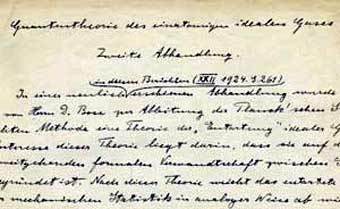 Quantentheorie des einatomigen idealen Gases
Zweite Abhandlung.
in diesen Berichten (XXII 1924. S. 261)
In einer neulich erschienenen Abhandlung wurde
von Herrn D. Bose zur Ableitung der Planck'schen
chten Methode eine Theorie der "Entartung" idealer G
nteresse dieser Theorie liegt darin, dass sie auf d
weitgehenden formalen Verwandtschaft zwischen
egründet ist. Nach dieser Theorie weicht das entartete
r mechanischen Statistik in analoger Weise ab wie